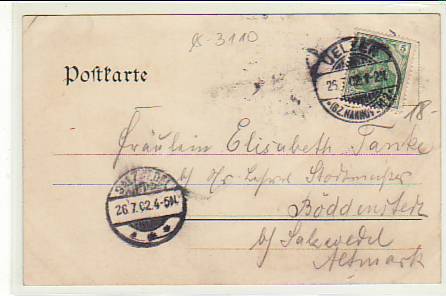 K-3110
UELZEN
25.7.02.1-2N.
* (BZ.HANNOVER)
5
Postkarte
18-
Fräulein Elisabeth Tanke
b/ Hr. Lehrer
Böddenstedt
b/ Salzwedel
Altmark
SALZWEDEL
26.7.02.4-5N.
* * *